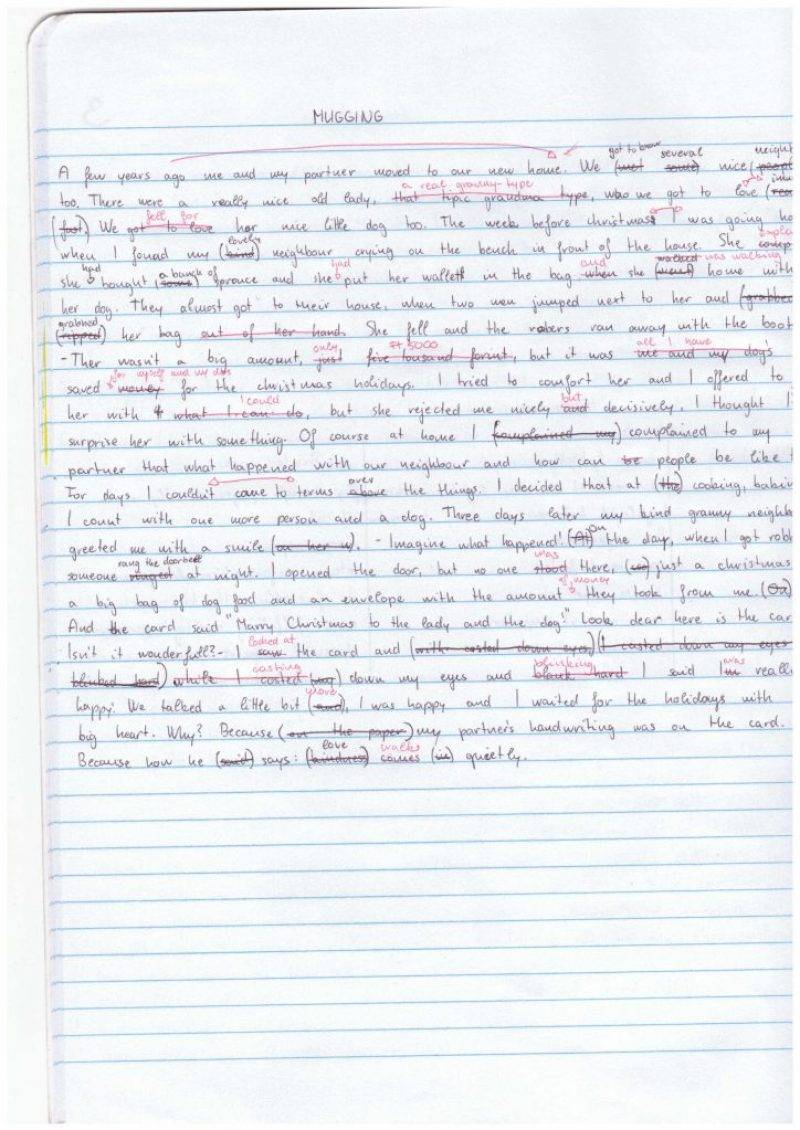 MUGGING
got to know several neight
A few years ago me and my partner moved to our new home. We (met some) nice (peopl
a real granny-type
too. There were a really nice old lady, that tipic grandma type, who we got to love (rea
fell for
(fast). We got to love her nice little dog too. The week before christmas I was going ho
lovely expla
when I found my (kind) neighbour crying on the bench in front of the house. She comp
had a bunch of had and walked was walking
she bought (some) prouce and she put her wallett in the bag when she (went) home with
her dog. They almost got to their house, when two men jumped next to her and (grabbed
grabbed
(ripped) her bag out of her hand. She fell and the robers ran away with the boot
only Ft 5000 all I have
- Ther wasn't a big amount, just five tousand forint, but it was me and my dog's
for myself and my dog
saved money for the christmas holidays. I tried to comfort her and I offered to
I could but
her with what I can do, but she rejected me nicely and decisively. I thought I
surprise her with something. Of course at home I (complained my) complained to my
partner that what happened with our neighbour and how can be people be like t
over
For days I couldn't come to terms above the things. I decided that at (the) cooking, bakin
I count with one more person and a dog. Three days later my kind granny neighbo
On
greeted me with a smile (on her u). - Imagine what happened! (At) the day, when I got robb
rang the doorbell was
someone ringed at night. I opened the door, but no one stood there, just a christmas
of money
a big bag of dog food and an envelope with the amount they took from me.
And the card said "Marry Christmas to the lady and the dog!" Look dear here is the car
looked at
Isn't it wonderfull? - I saw the card and (with casted down eyes) (I casted down my eyes
casting blinking was
blinked hard) while I casted down my eyes and blink hard I said I'm reall
more
happy. We talked a little bit (and), I was happy and I waited for the holidays with
big heart. Why? Because (on the paper) my partner's handwriting was on the card.
love walks
Because how he (said) says: (kindness) comes (in) quietly.